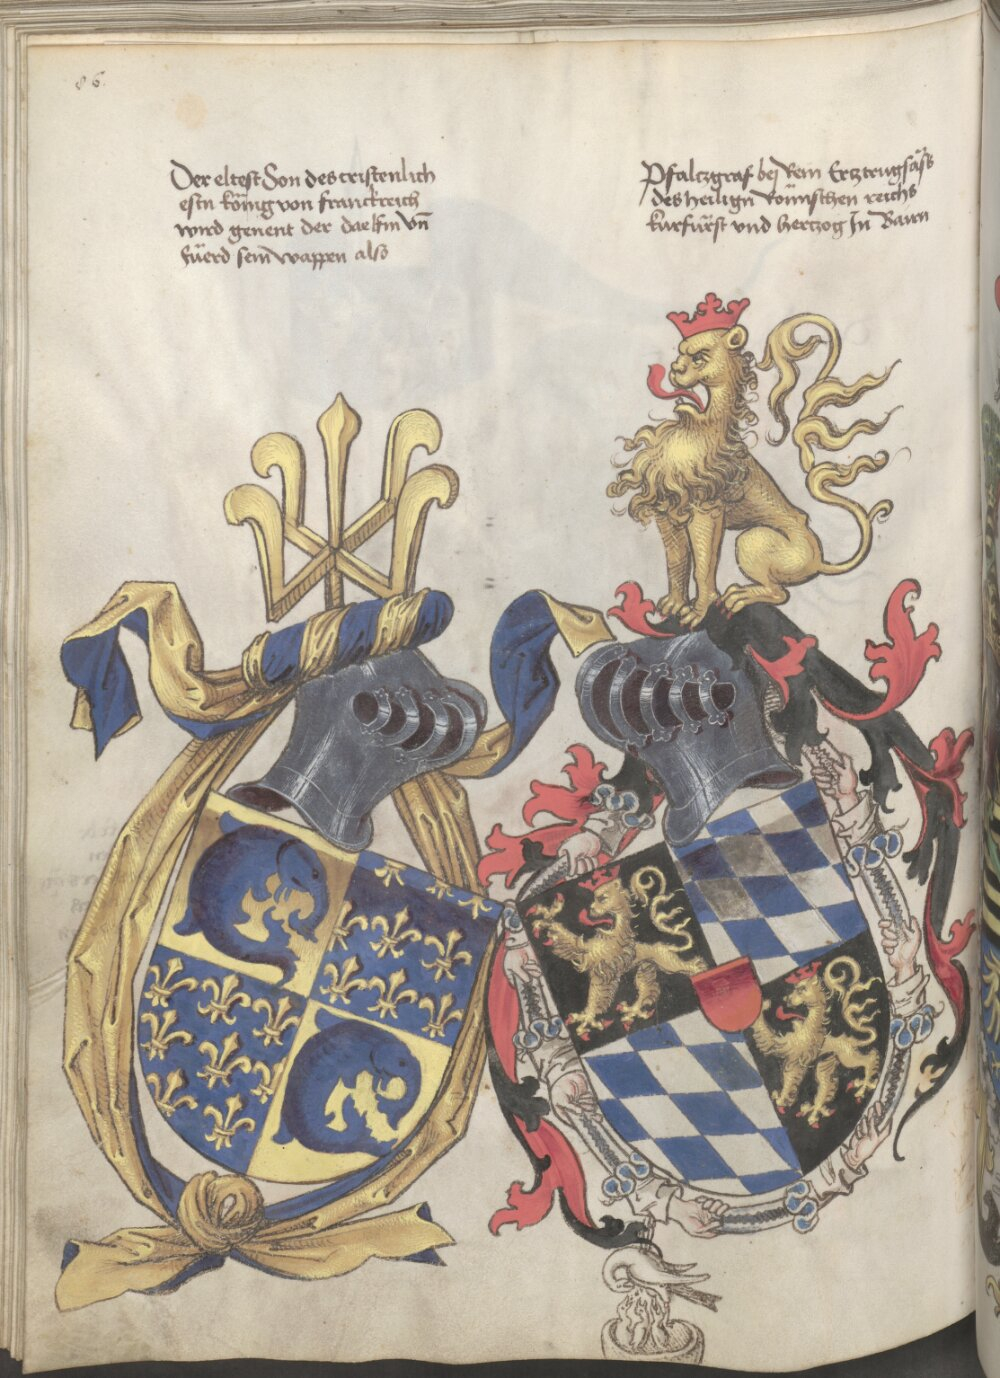 86.
Der eltest Son des cristenlich
estn könig von franckreich
wird genent der daelfin vn̄
füerd sein wappen also
Pfaltzgraf bej Rein Ertztrugsäss
des heilign Römischen reichs
kurfürst vnd hertzog In Bairn